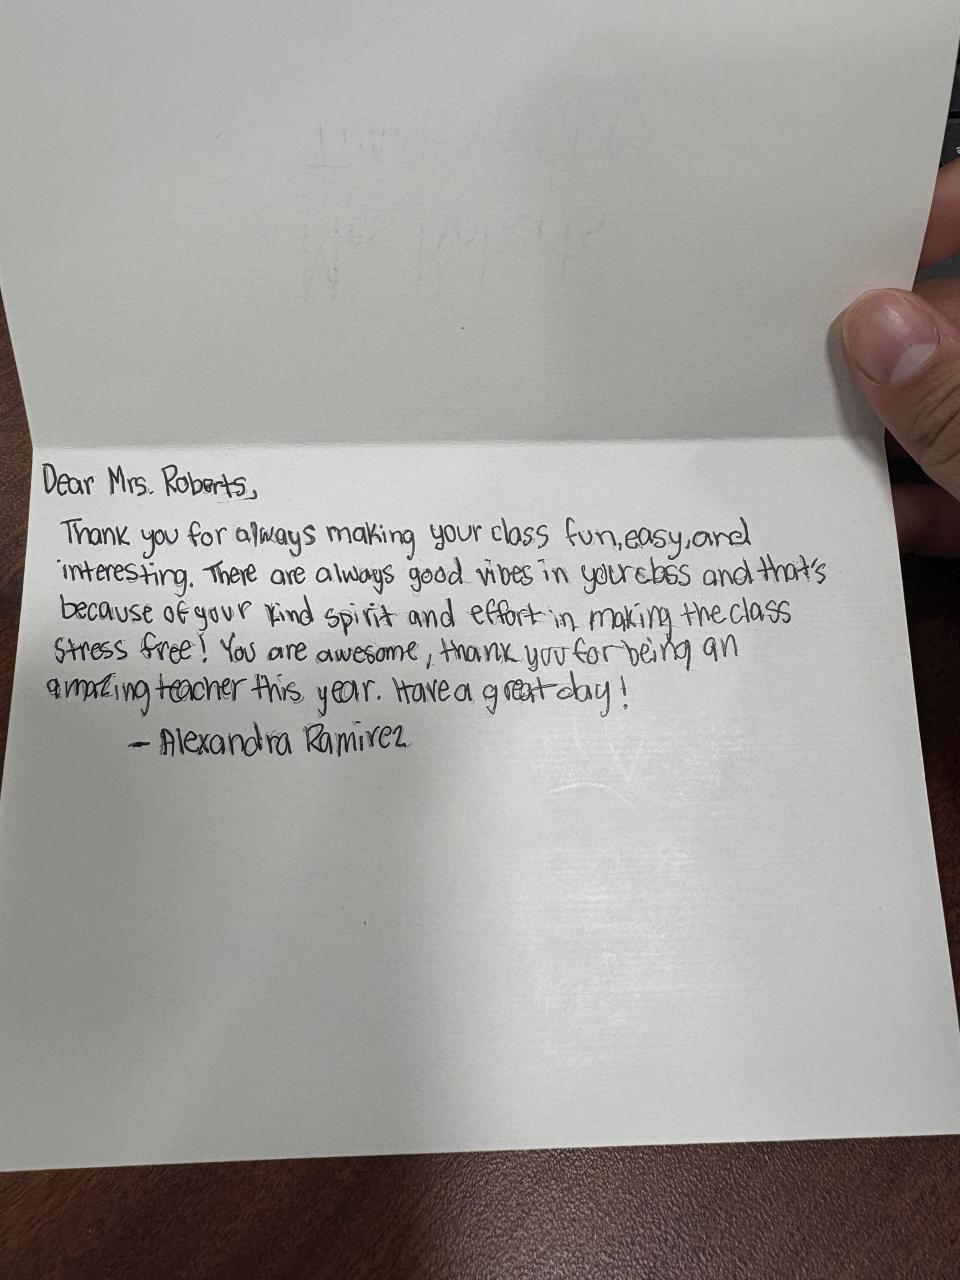 Dear Mrs. Roberts,
Thank you for always making your class fun, easy, and
interesting. There are always good vibes in your class and that's
because of your kind spirit and effort in making the class
stress free! You are awesome, thank you for being an
amazing teacher this year. Have a great day!
- Alexandra Ramirez